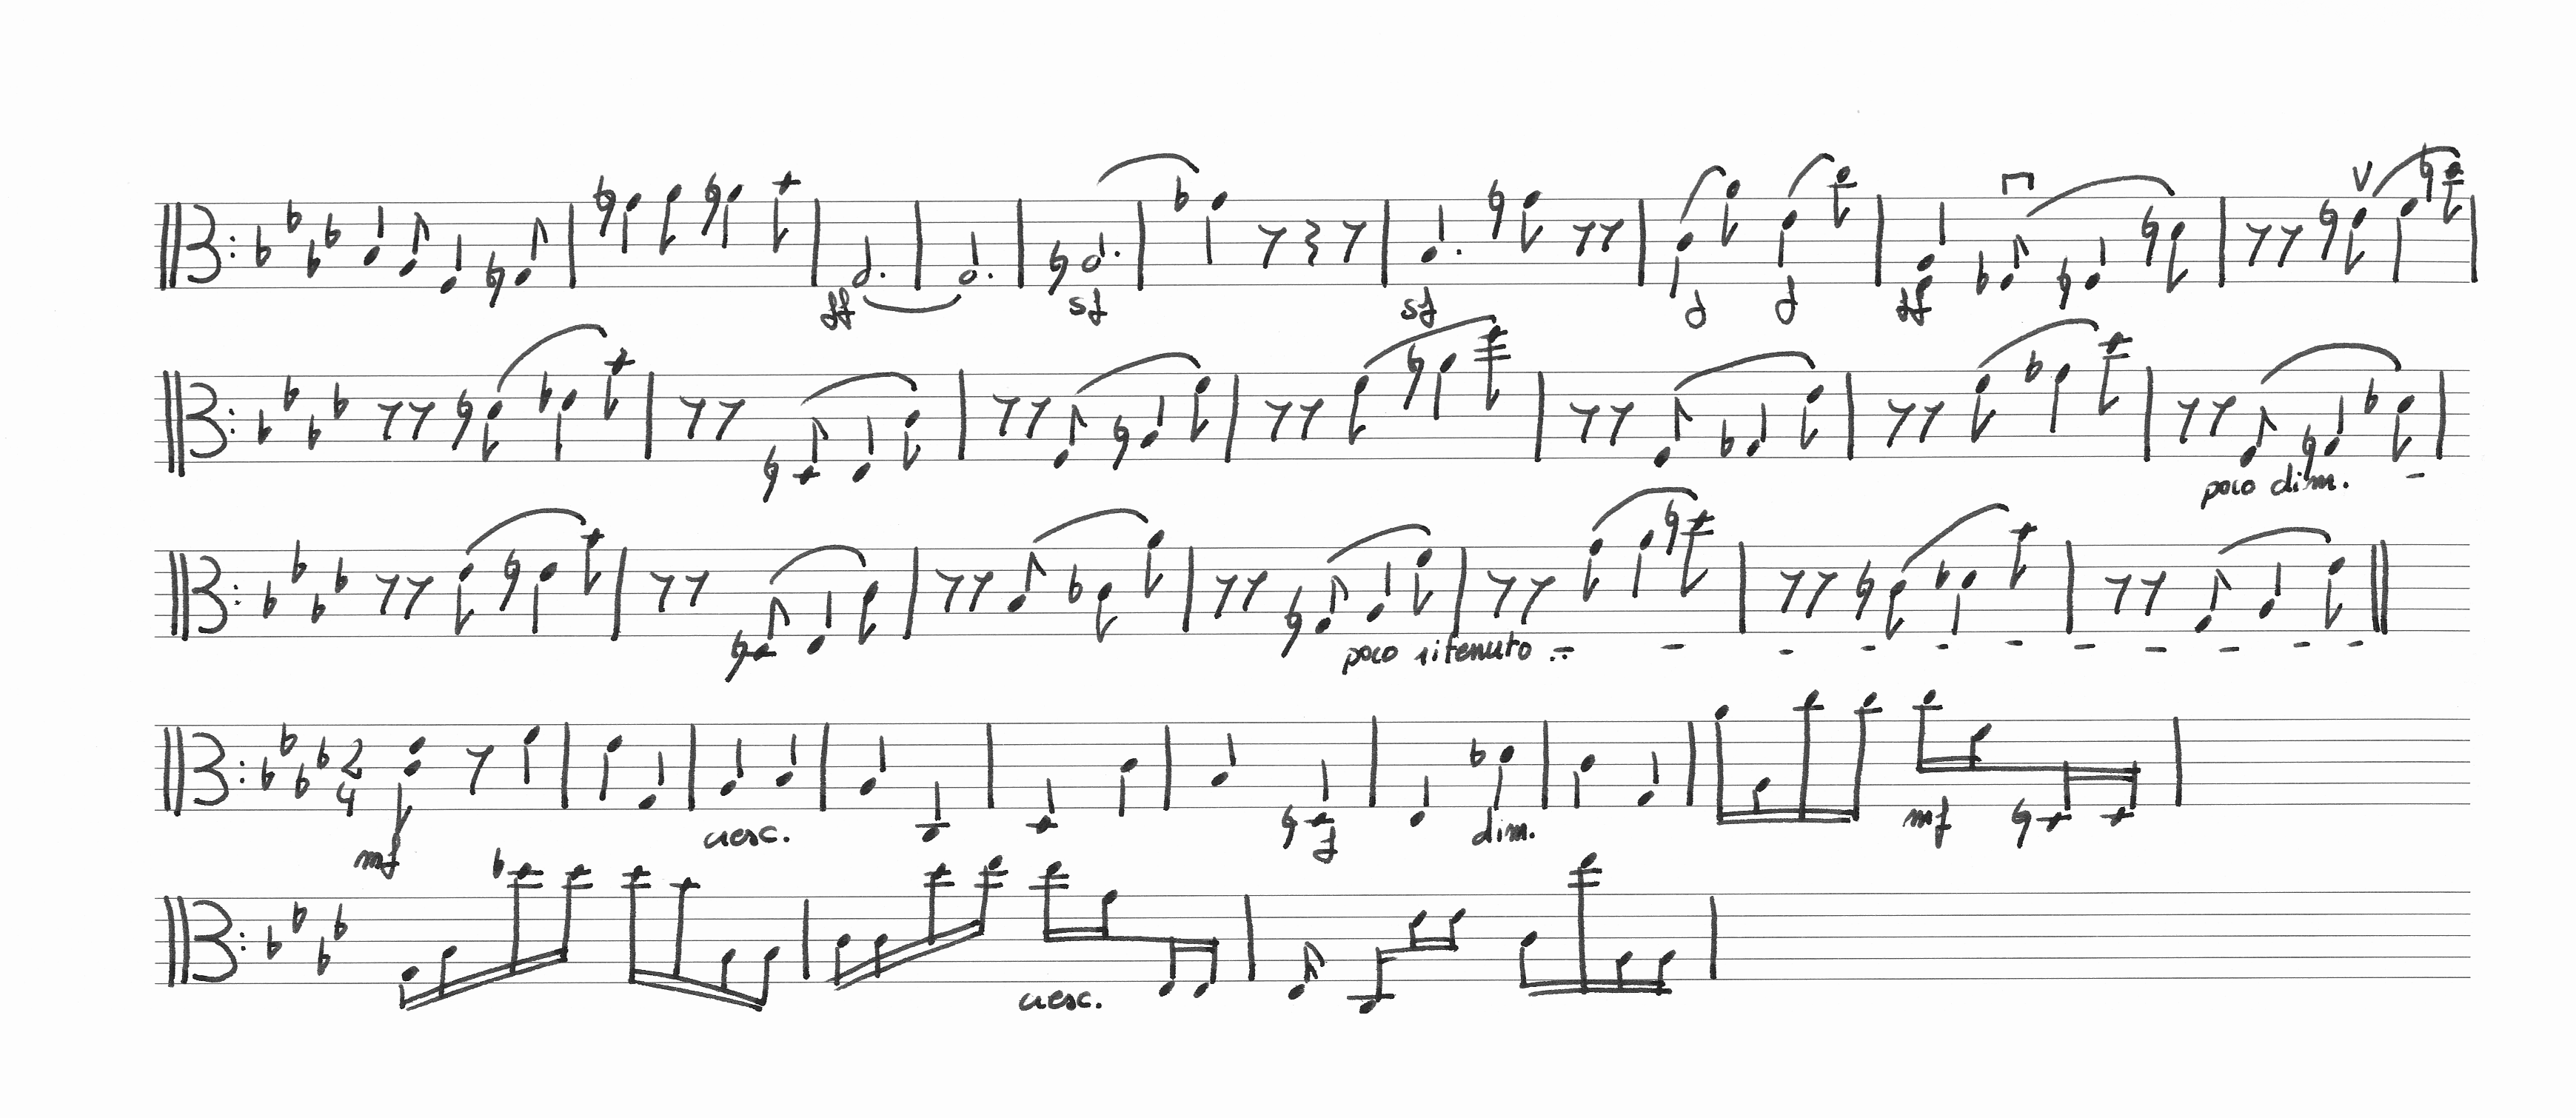 ff sf sf f f ff V
poco dim. -
poco ritenuto . - - - - - - - - - - -
2 4 mf cresc. f dim. mf
cresc.